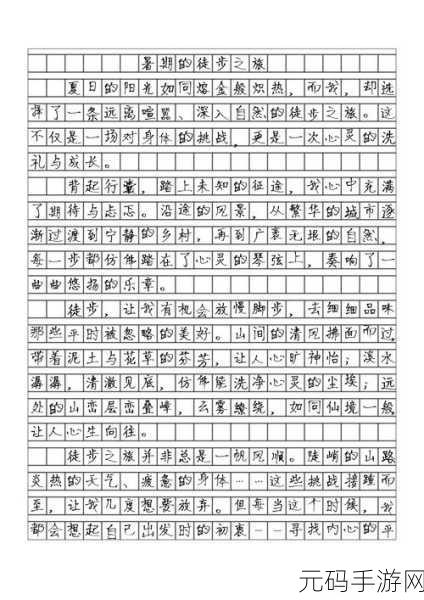 暑期的徒步之旅
夏日的阳光如同熔金般炽热，而我，却选
择了一条远离喧嚣、深入自然的徒步之旅。这
不仅是一场对身体的挑战，更是一次心灵的洗
礼与成长。
背起行囊，踏上未知的征途，我心中充满
了期待与忐忑。沿途的风景，从繁华的城市逐
渐过渡到宁静的乡村，再到广袤无垠的自然，
每一步都仿佛踏在了心灵的琴弦上，奏响了一
曲曲悠扬的乐章。
徒步，让我有机会放慢脚步，去细细品味
那些平时被忽略的美好。山间的清风拂面而过，
带着泥土与花草的芬芳，让人心旷神怡；溪水
潺潺，清澈见底，仿佛能洗净心灵的尘埃；远
处的山峦层峦叠嶂，云雾缭绕，如同仙境一般，
让人心生向往。
徒步之旅并非总是一帆风顺。陡峭的山路、
炎热的天气、疲惫的身体……这些挑战接踵而
至，让我几度想要放弃。但每当这个时候，我
都会想起自己出发时的初衷——寻找内心的平
元码手游网